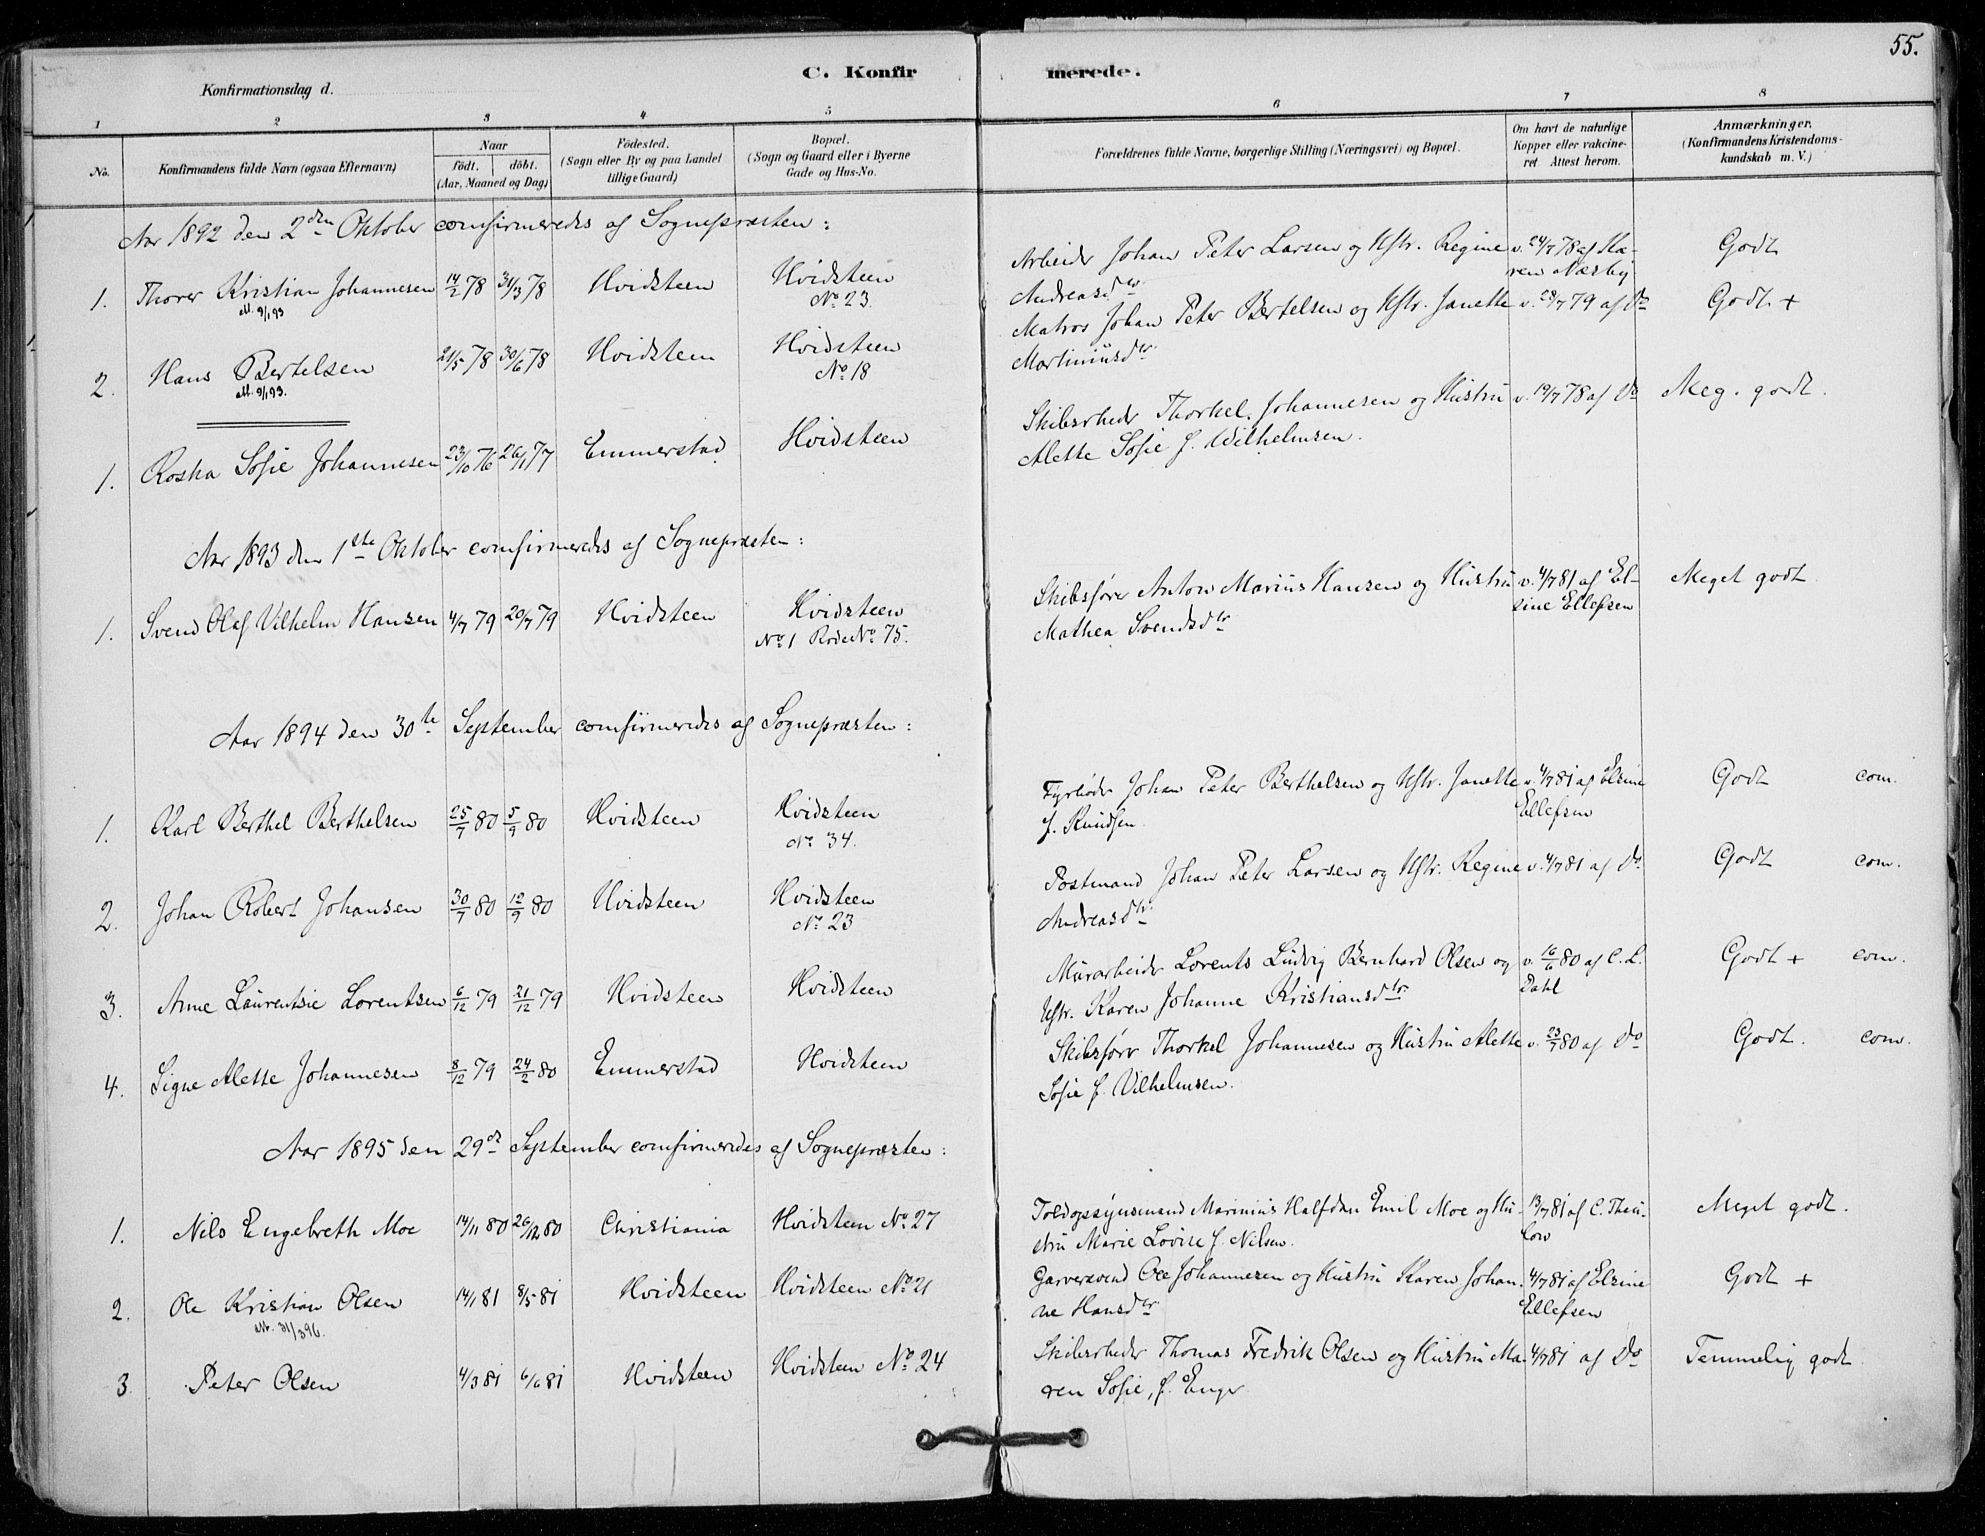 55.
C. Konfirmerede.
Konfirmationsdag d.
1 2 3 4 5 6 7 8
No.
Konfirmandens fulde Navn (ogsaa Efternavn)
Naar
födt. döbt.
(Aar, Maaned og Dag)
Födested.
(Sogn eller By og paa Landet
tillige Gaard)
Bopæl.
(Sogn og Gaard eller i Byerne
Gade og Hus-No.
Forældrenes fulde Navne, borgerlige Stilling (Næringsvei) og Bopæl.
Om havt de naturlige
Kopper eller vakcine-
ret Attest herom.
Anmærkninger.
(Konfirmandens Kristendoms-
kundskab m. V.)
Aar 1892 den 2den Oktober comfirmeredes af Sognepræsten:
1. Thorer Kristian Johannesen 14/2 78 31/3 78 Hvidsteen Hvidsteen
att. 9/1 93 No 23.
Arbeider Johan Peter Larsen og Hstr. Regine v. 24/7 78 af Ka- Godt
Andreasdtr ren Næsby
2. Hans Bertelsen 21/5 78 30/6 78 Hvidsteen Hvidsteen
att. 9/1 93. No 18
Matros Johan Peter Bertelsen og Hstr. Janette v. 28/7 79 af Do Godt +
Martiniusdtr
1. Roska Sofie Johannesen 23/10 76 26/1 77 Emmerstad Hvidsteen
Skibsrheder Thorkel Johannesen og Hustru v. 19/7 78 af Do Meg. godt.
Alette Sofie f. Wilhelmsen.
Aar 1893 den 1ste Oktober comfirmeredes af Sognepræsten:
1. Svend Olaf Vilhelm Hansen 4/7 79 20/7 79 Hvidsteen Hvidsteen
No 1 Rode No 75.
Skibsfører Anton Marius Hansen og Hustru v. 4/7 81 af El- Meget godt
Mathea Svendsdtr sine Ellefsen
Aar 1894 den 30te September comfirmeredes af Sognepræsten:
1. Karl Berthel Berthelsen 25/7 80 5/9 80 Hvidsteen Hvidsteen
No 34.
Fyrböder Johan Peter Berthelsen og Hstr. Janette v. 4/7 81 af Elsine Godt com.
f. Knudsen Ellefsen
2. Johan Robert Johansen 30/7 80 12/9 80 Hvidsteen Hvidsteen
No 23
Postmand Johan Peter Larsen og Hstr. Regine v. 4/7 81 af Do. Godt com.
Andreasdtr
3. Anne Laurentsie Lorentsen 6/12 79 21/12 79 Hvidsteen Hvidsteen
Murarbeider Lorents Ludvig Bernhard Olsen og v. 16/6 80 af C. L. Godt + com.
Hstr. Karen Johanne Kristiansdtr Dahl
4. Signe Alette Johannesen 8/12 79 24/2 80 Emmerstad Hvidsteen
Skibsförer Thorkel Johannesen og Hustru Alette v. 23/7 80 af Do Godt. com.
Sofie f. Vilhelmsen.
Aar 1895 den 29de September comfirmeredes af Sognepræsten:
1. Nils Engebreth Moe 14/11 80 26/12 80 Christiania Hvidsteen No 27
Toldopsynsmand Marinius Halfdan Emil Moe og Hu- 13/7 81 af C. Thau- Meget godt.
stru Marie Lovise f. Nilsen. low
2. Ole Kristian Olsen 14/1 81 8/5 81 Hvidsteen Hvidsteen No 21
att. 31/3 96.
Garversvend Ole Johannesen og Hustru Karen Johan- 4/7 81 af Elsine Godt +
ne Hansdtr Ellefsen
3. Peter Olsen 4/3 81 6/6 81 Hvidsteen Hvidsteen No 24
Skibsrheder Thomas Fredrik Olsen og Hustru Ma- 4/7 81 af Do Temmelig godt
ren Sofie, f. Enger